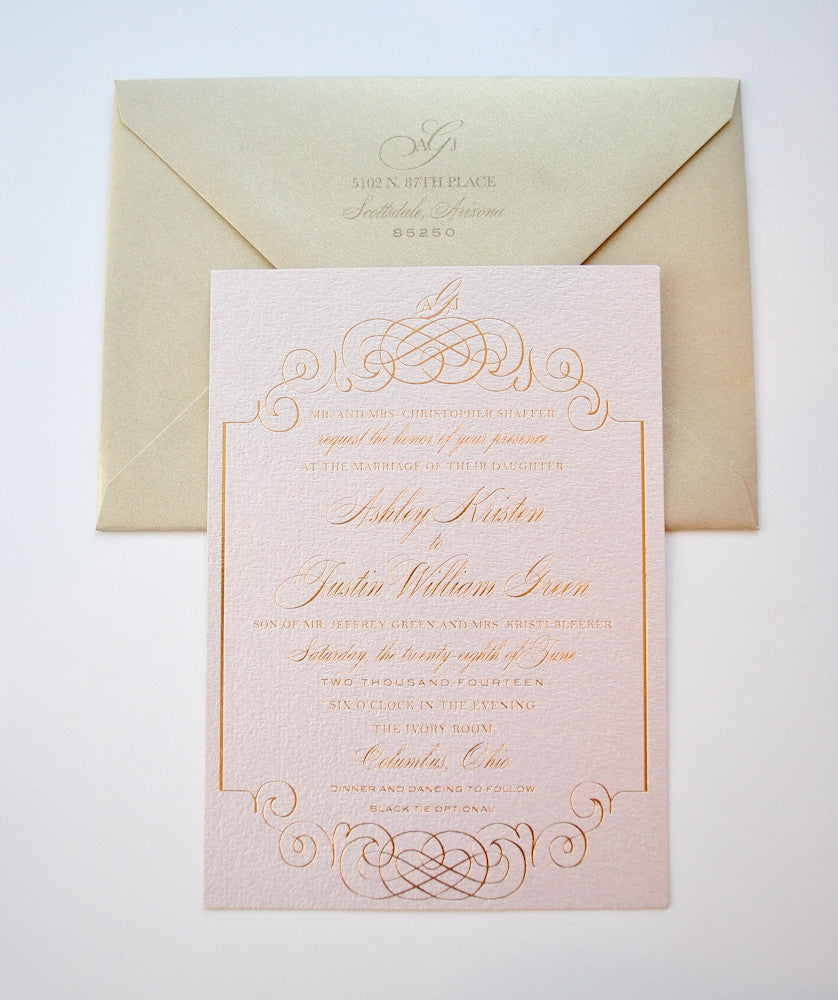 AGJ
5102 N. 87TH PLACE
Scottsdale, Arizona
85250
AGJ
MR. AND MRS. CHRISTOPHER SHAFFER
request the honor of your presence
AT THE MARRIAGE OF THEIR DAUGHTER
Ashley Kristen
to
Justin William Green
SON OF MR. JEFFREY GREEN AND MRS. KRISTI BLEEKER
Saturday, the twenty-eighth of June
TWO THOUSAND FOURTEEN
SIX O'CLOCK IN THE EVENING
THE IVORY ROOM
Columbus, Ohio
DINNER AND DANCING TO FOLLOW
BLACK TIE OPTIONAL